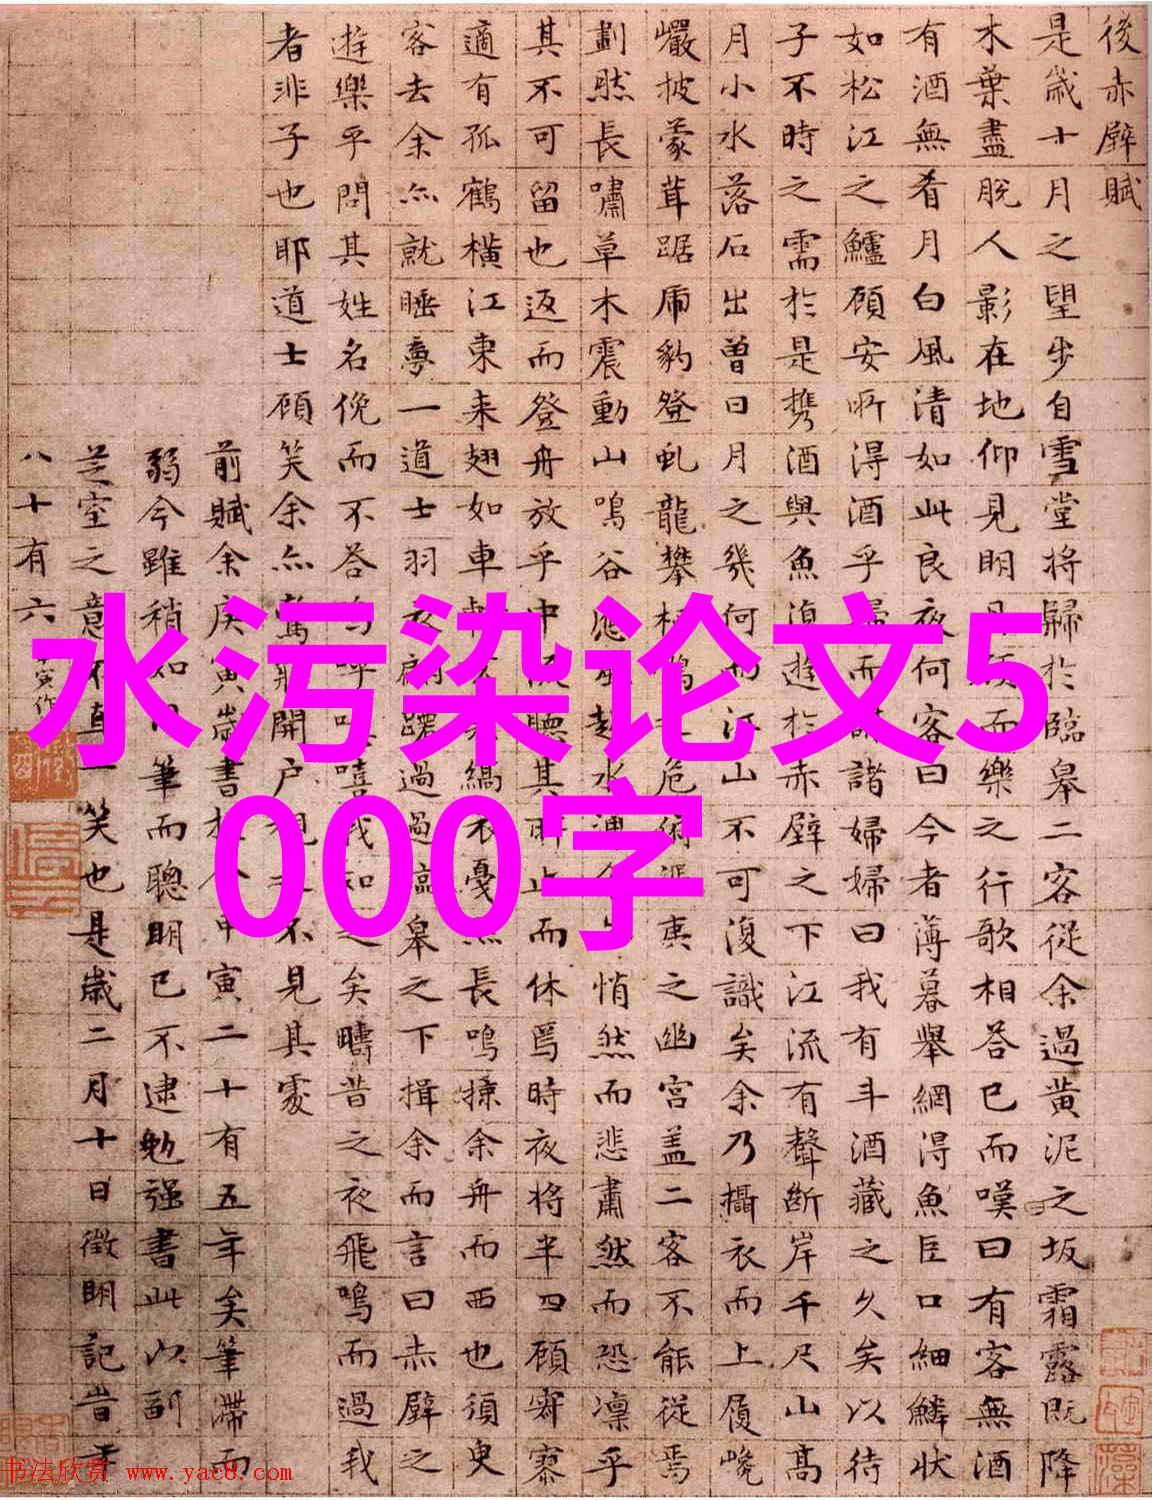 水污染论文5
000字
後赤壁賦
是歲十月之望步自雪堂將歸於臨皋二客從余過黃泥之坂霜露既降
木葉盡脫人影在地仰見明月顧而樂之行歌相荅已而嘆曰有客無酒
有酒無肴月白風清如此良夜何客曰今者薄暮舉網得魚巨口細鱗狀
如松江之鱸顧安所得酒乎歸而謀諸婦婦曰我有斗酒藏之久矣以待
子不時之需於是携酒與魚復遊於赤壁之下江流有聲斷岸千尺山高
月小水落石出曾日月之幾何而江山不可復識矣余乃攝衣而上履巉
巖披蒙茸踞虎豹登虬龍攀栖鶻之危俯馮夷之幽宮盖二客不能從焉
劃然長嘯草木震動山鳴谷應風起水涌余悄然而悲肅然而恐凜乎
其不可留也返而登舟放乎中流聽其所止而休焉時夜將半四顧寂寥
適有孤鶴橫江東来翅如車輪玄裳縞衣戛然長鳴掠余舟而西也須臾
客去余亦就睡夢一道士羽衣翩躚過過臨皋之下揖余而言曰赤壁之
遊樂乎問其姓名俛而不荅嗚呼噫嘻我知之矣疇昔之夜飛鳴而過我
者非子也耶道士顧笑余亦驚開户視之不見其處
前賦余庚寅歲書抵今甲寅二十有五年矣筆滯而
弱今雖稍知用筆而聰明已不逮勉强書此以副
芝室之意不直一笑也是歲二月十日徵明記昔年
八十有六
书法欣赏 www.yac8.com